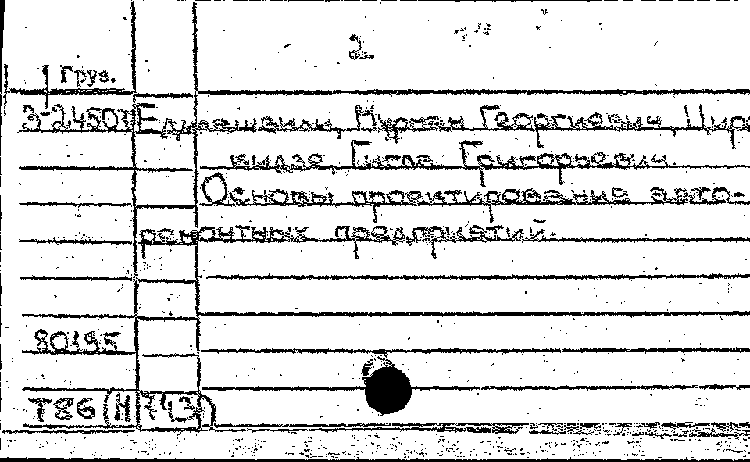 2
Груз.
Э-24503 Едилашвили, Нурман Георгиевич, Цирe
кидзе, Гигла Григорьевич.
Основы проектирования авто-
ремонтных предприятий.
80195
Т86(Н743)